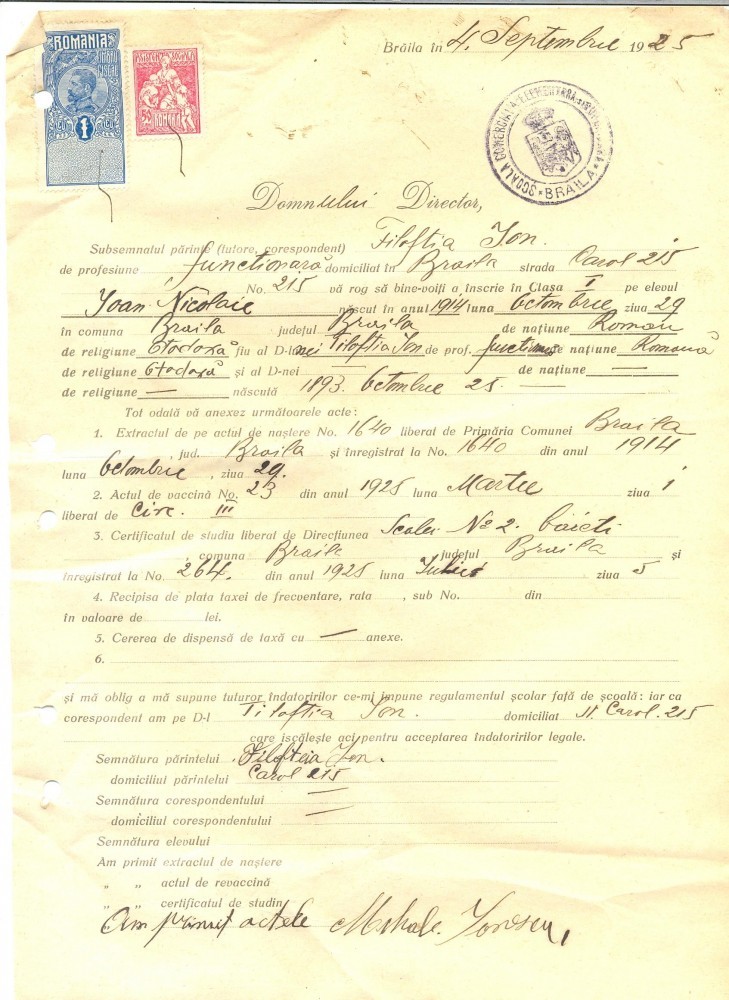 ROMANIA
1
50
ROMANIA
Brăila în 4. Septembrie 1925
ȘCOALA COMERCIALĂ ELEMENTARA
BRAILA
Domnului Director,
Subsemnatul părinte (tutore, corespondent) Filoftia Ion.
de profesiune functionară domiciliat în Braila strada Carol 215
No. 215 vă rog să bine-voiți a înscrie în Clasa I pe elevul
Ioan Nicolaie născut în anul 1914 luna Octombrie ziua 29
în comuna Braila județul Braila de națiune Roman
de religiune Otodoxă fiu al D-lnei Filoftia Ion de prof. functionară de națiune Romană
de religiune Otodoxă și al D-nei — de națiune —
de religiune — născută 1893. Octombrie 25. —
Tot odată vă anexez următoarele acte:
1. Extractul de pe actul de naștere No. 1640 liberat de Primăria Comunei Braila
, jud. Braila și înregistrat la No. 1640 din anul 1914
luna Octombrie , ziua 29.
2. Actul de vaccină No. 23 din anul 1925 luna Martie ziua 1
liberat de Circ. III
3. Certificatul de studiu liberat de Direcțiunea Scolei No 2. baieti
, comuna Braila județul Braila și
înregistrat la No. 264. din anul 1925 luna Iulie ziua 5
4. Recipisa de plata taxei de frecventare, rata , sub No. din
în valoare de lei.
5. Cererea de dispensă de taxă cu — anexe.
6.
și mă oblig a mă supune tuturor îndatoririlor ce-mi impune regulamentul școlar față de școală: iar ca
corespondent am pe D-l Filoftia Ion. domiciliat st. Carol. 215
care iscălește aci pentru acceptarea îndatoririlor legale.
Semnătura părintelui Filofteia Ion.
domiciliul părintelui Carol 215
Semnătura corespondentului —
domiciliul corespondentului —
Semnătura elevului
Am primit extractul de naștere
„ „ actul de revaccină
„ „ certificatul de studin
Am primit actele Mihale Ionescu